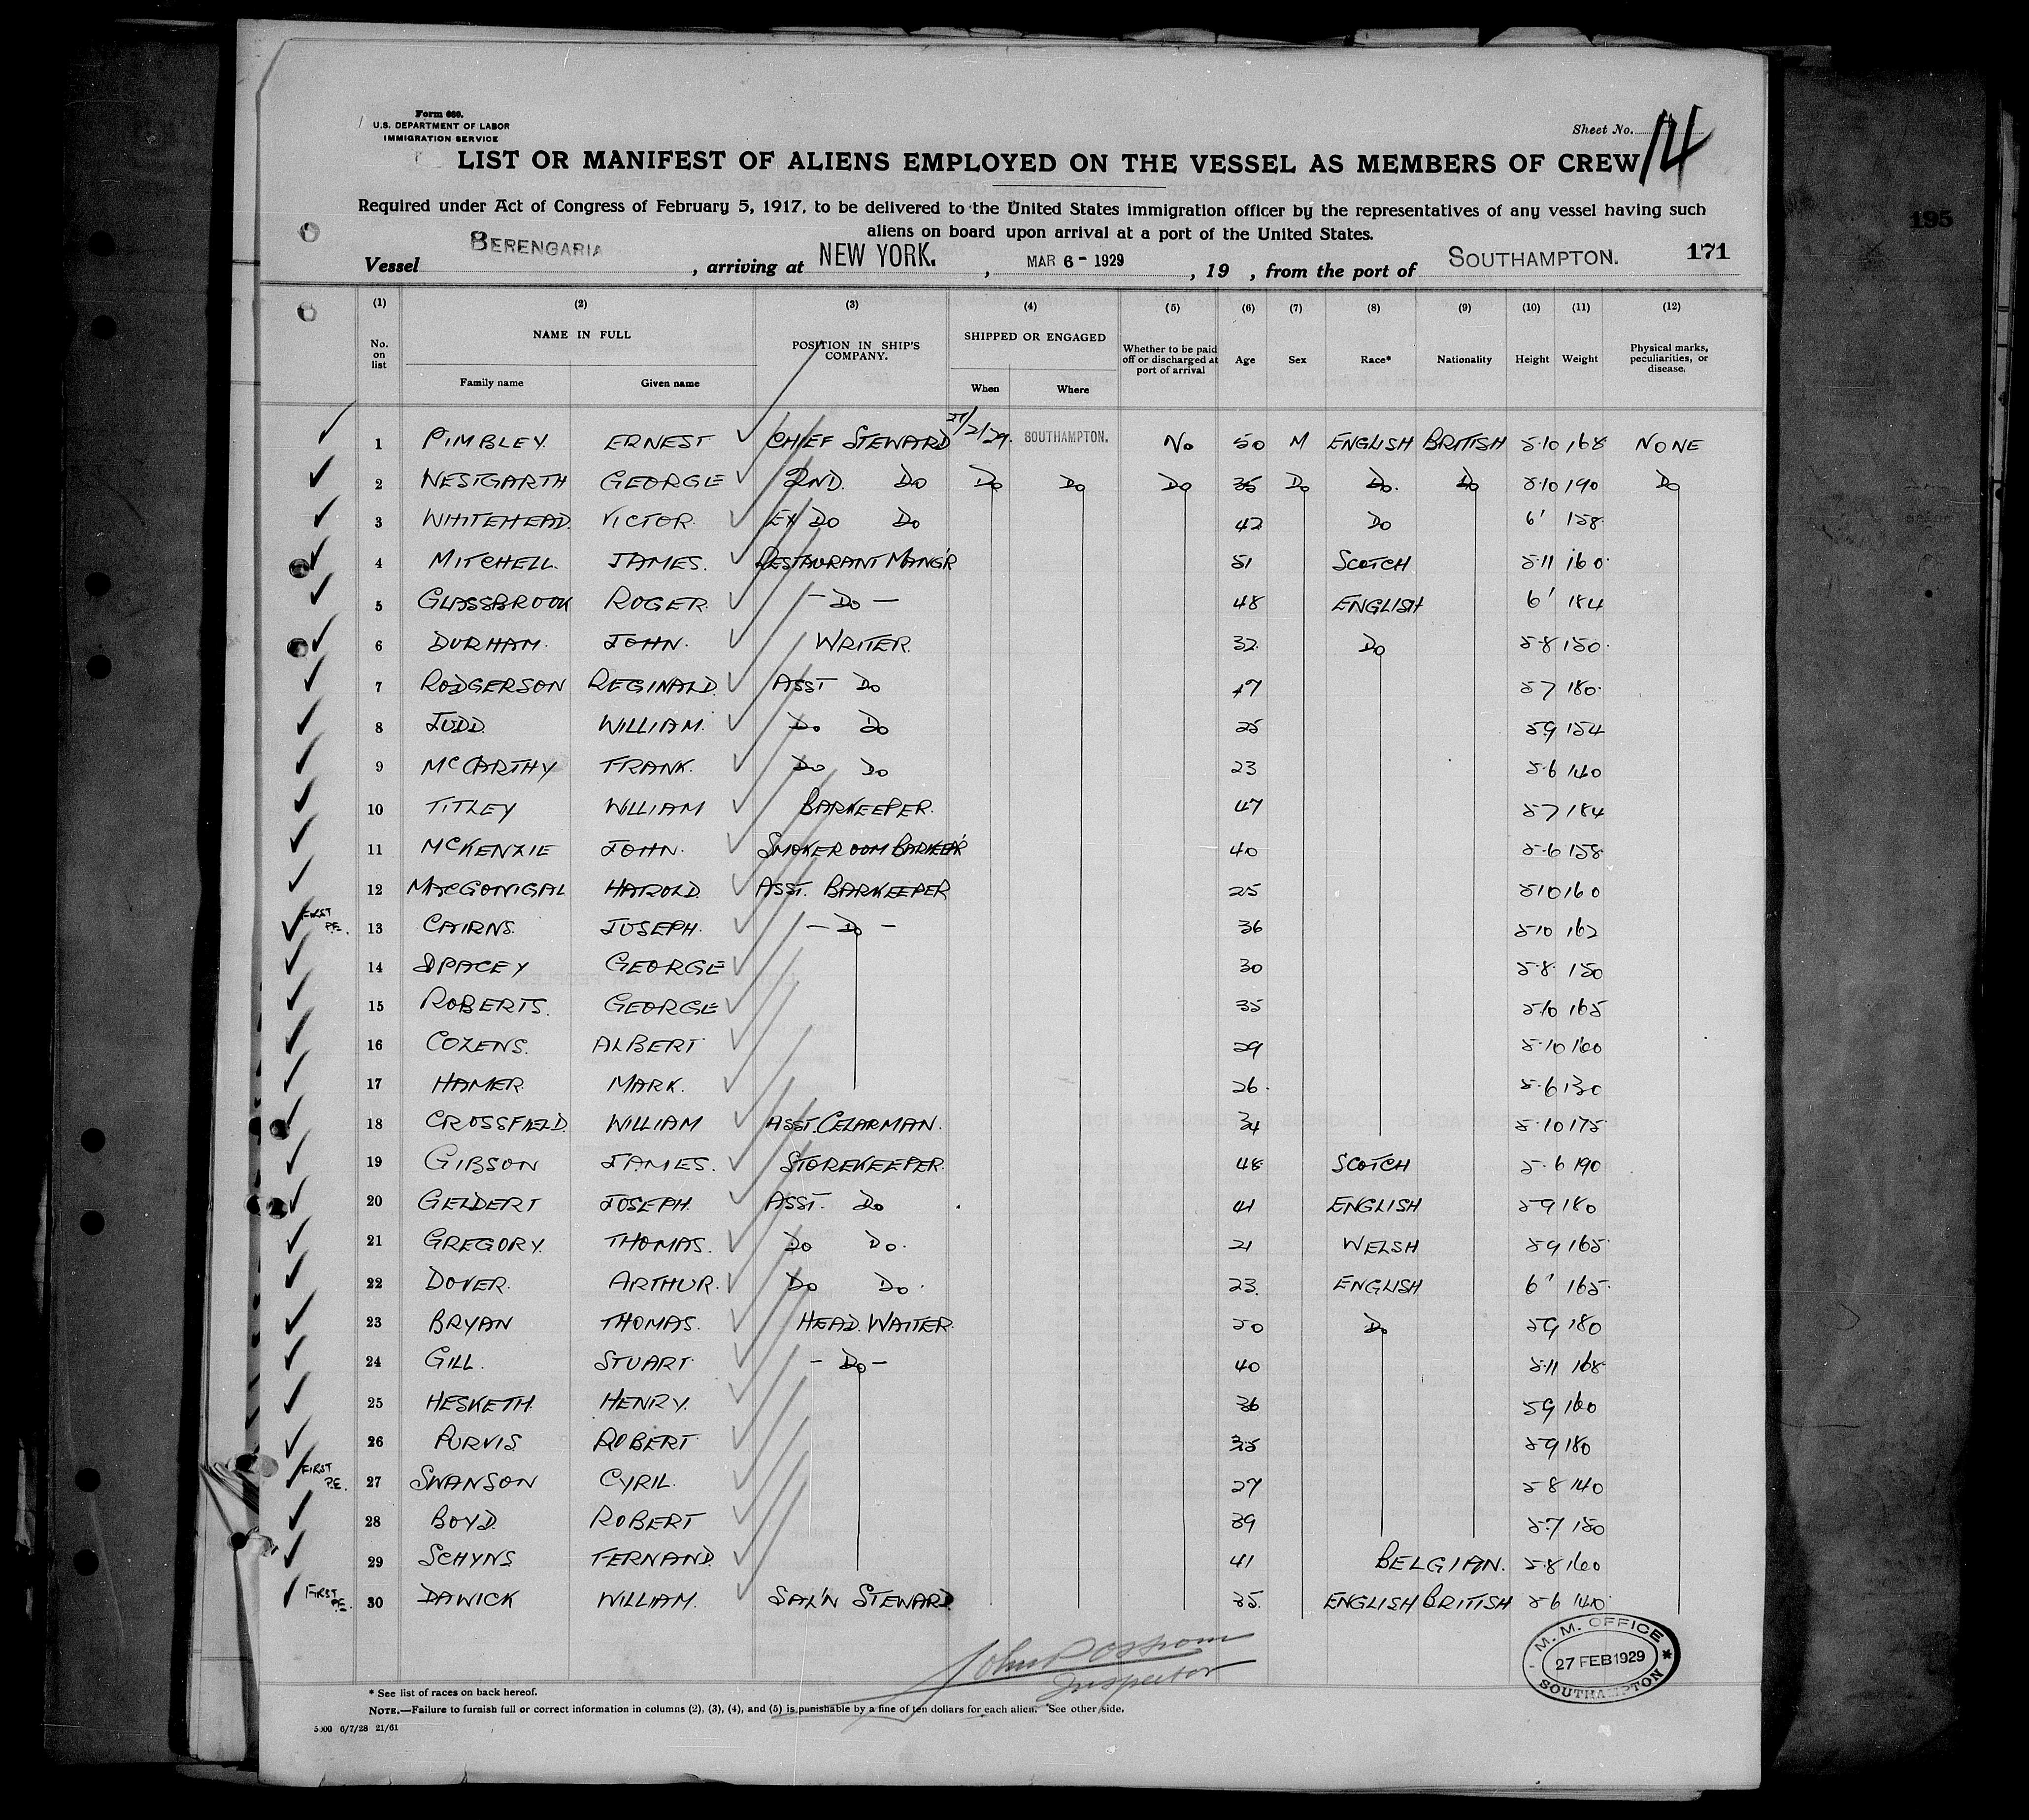 Form 689.
U.S. DEPARTMENT OF LABOR
IMMIGRATION SERVICE
Sheet No. 14
LIST OR MANIFEST OF ALIENS EMPLOYED ON THE VESSEL AS MEMBERS OF CREW
Required under Act of Congress of February 5, 1917, to be delivered to the United States immigration officer by the representatives of any vessel having such
aliens on board upon arrival at a port of the United States.
195
Vessel BERENGARIA, arriving at NEW YORK., MAR 6 - 1929, 19 , from the port of SOUTHAMPTON. 171
(1) (2) (3) (4) (5) (6) (7) (8) (9) (10) (11) (12)
No. on list NAME IN FULL POSITION IN SHIP'S COMPANY. SHIPPED OR ENGAGED Whether to be paid off or discharged at port of arrival Age Sex Race* Nationality Height Weight Physical marks, peculiarities, or disease.
Family name Given name When Where
1 PIMBLEY. ERNEST CHIEF STEWARD 27/2/29. SOUTHAMPTON. No 50 M ENGLISH BRITISH 5.10 168 NONE
2 WESTGARTH GEORGE 2ND. Do Do Do Do 35 Do Do. Do 5.10 190 Do
3 WHITEHEAD. VICTOR. Ex Do Do 42 Do 6' 158
4 MITCHELL. JAMES. RESTAURANT MANG'R 51 SCOTCH 5.11 160
5 GLASSBROOK ROGER. - Do - 48 ENGLISH 6' 184
6 DURHAM. JOHN. WRITER. 32. Do 5.8 150
7 RODGERSON REGINALD. ASST Do 47 5.7 180
8 JUDD. WILLIAM. Do Do 25 5.9 154
9 McCARTHY FRANK. Do Do 23 5.6 140
10 TITLEY WILLIAM BARKEEPER. 47 5.7 184
11 McKENZIE JOHN. SMOKEROOM BARKEE'R 40 5.6 158
12 MacGONIGAL HAROLD. ASST. BARKEEPER 25 5.10 160
FIRST P.E. 13 CAIRNS. JOSEPH. - Do - 36 5.10 162
14 SPACEY GEORGE 30 5.8. 150
15 ROBERTS. GEORGE 35 5.10 165
16 COZENS. ALBERT 29 5.10 160
17 HAMER. MARK. 26. 5.6 130
18 CROSSFIELD. WILLIAM ASST. CELARMAN. 34 5.10 175
19 GIBSON JAMES. STOREKEEPER. 48 SCOTCH 5.6 190
20 GELDERT JOSEPH. ASST. Do 41 ENGLISH 5.9 180
21 GREGORY. THOMAS. Do Do. 21 WELSH 5.9 165
22 DOVER. ARTHUR. Do Do. 23. ENGLISH 6' 165
23 BRYAN THOMAS. HEAD. WAITER. 50 Do 5.9 180
24 GILL. STUART. - Do - 40 5.11 168
25 HESKETH. HENRY. 36 5.9 160
26 PURVIS ROBERT 35 5.9 180
FIRST P.E. 27 SWANSON CYRIL. 27 5.8 140
28 BOYD. ROBERT 39 5.7 150
29 SCHYNS FERNAND. 41 BELGIAN. 5.8 160
FIRST P.E. 30 DAWICK WILLIAM. SAL'N STEWARD. 35. ENGLISH BRITISH 5.6 140
Inspector
M. M. OFFICE
27 FEB 1929
SOUTHAMPTON
* See list of races on back hereof.
NOTE.—Failure to furnish full or correct information in columns (2), (3), (4), and (5) is punishable by a fine of ten dollars for each alien. See other side.
5000 6/7/28 21/61